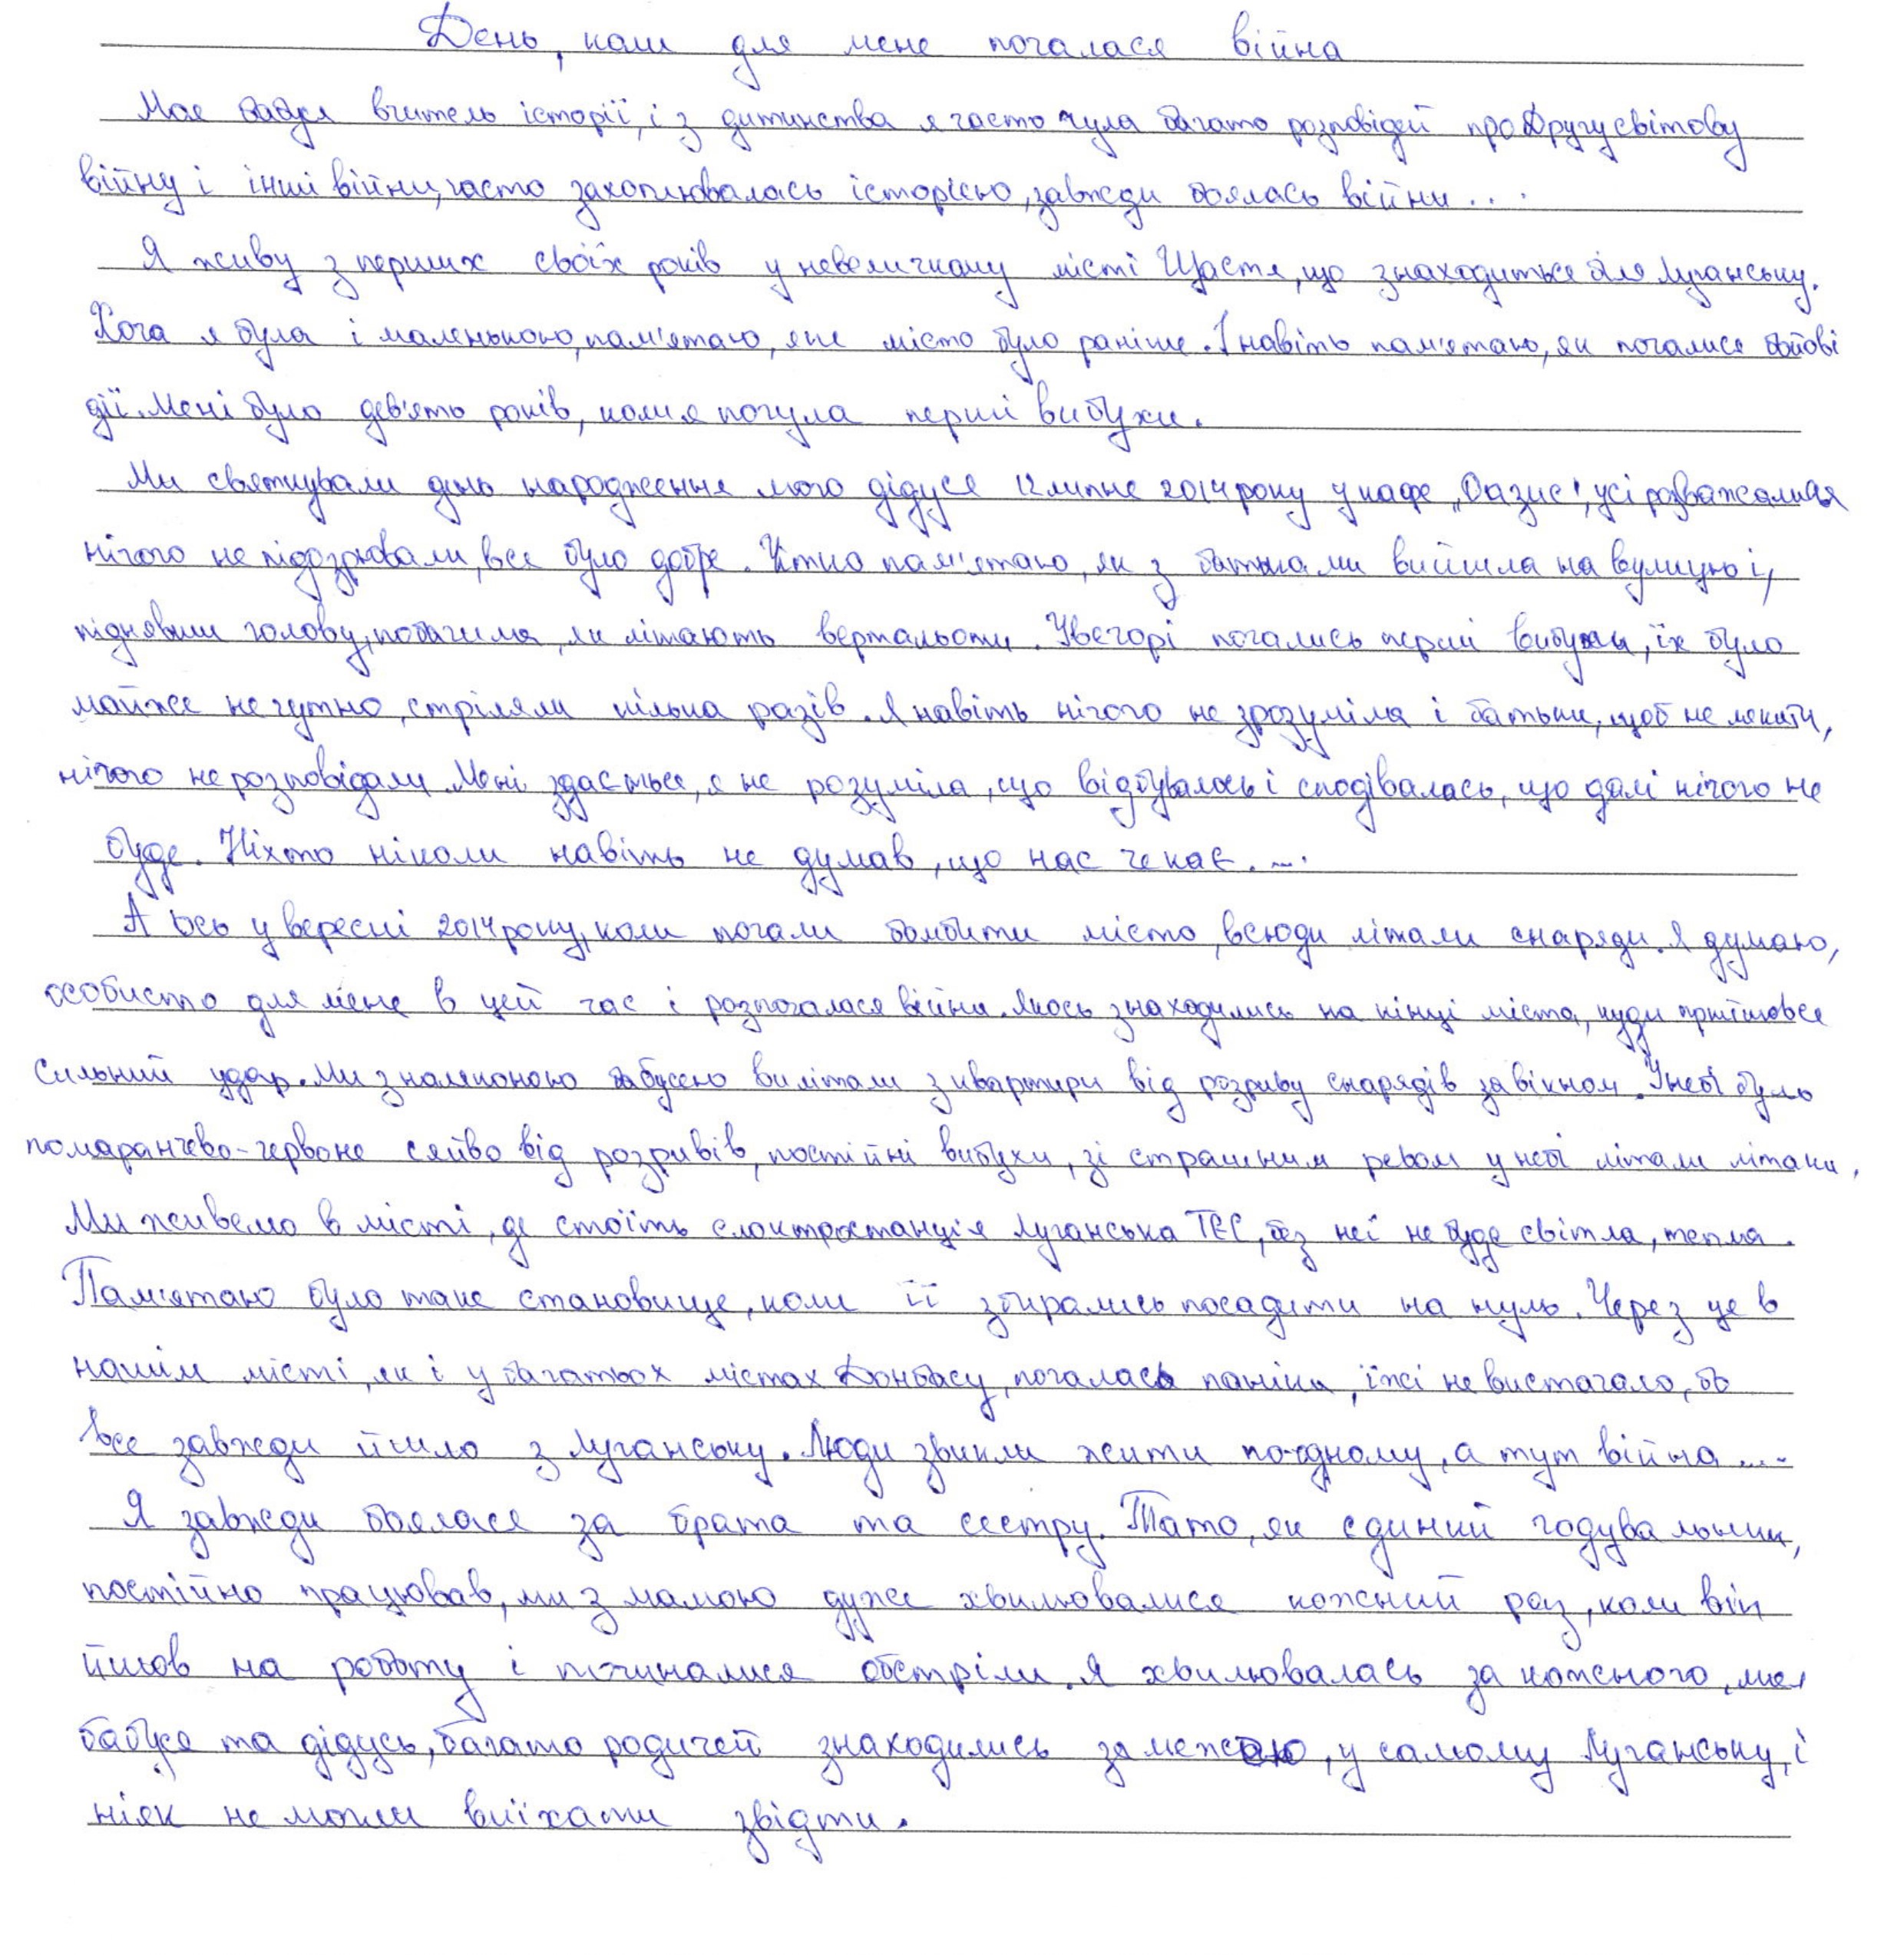 День, коли для мене почалася війна
Моя бабуся вчитель історії, і з дитинства я часто чула багато розповідей про Другу світову
війну і інші війни, часто захоплювалась історією, завжди боялась війни...
Я живу з перших своїх років у невеличкому місті Щастя, що знаходиться біля Луганську.
Хоча я була і маленькою, пам'ятаю, яке місто було раніше. І навіть пам'ятаю, як почалися бойові
дії. Мені було дев'ять років, коли я почула перші вибухи.
Ми святкували день народження мого дідуся 12 липня 2014 року у кафе „Оазис", усі розважалися
нічого не підозрювали, все було добре. Чітко пам'ятаю, як з батьками вийшла на вулицю і,
піднявши голову, побачила, як літають вертальоти. Увечорі почались перші вибухи, їх було
майже не чутно, стріляли кілька разів. Я навіть нічого не зрозуміла і батьки, щоб не лякати,
нічого не розповідали. Мені здається, я не розуміла, що відбувалось і сподівалась, що далі нічого не
буде. Ніхто ніколи навіть не думав, що нас чекає....
А ось у вересні 2014 року, коли почали бомбити місто, всюди літали снаряди. Я думаю,
особисто для мене в цей час і розпочалася війна. Якось знаходились на кінці міста, куди прийшовся
сильний удар. Ми з наляканою бабусею вилітали з квартири від розриву снарядів за вікном. У небі було
помаранчево-червоне сяйво від розривів, постійні вибухи, зі страшним ревом у небі літали літаки.
Ми живемо в місті, де стоїть електростанція Луганська ТЕС, без неї не буде світла, тепла.
Пам'ятаю було таке становище, коли її збирались посадити на нуль. Через це в
нашім місті, як і у багатьох містах Донбасу, почалась паніка, їжі не вистачало, бо
все завжди йшло з Луганську. Люди звикли жити по-одному, а тут війна....
Я завжди боялася за брата та сестру. Тато, як єдиний годувальник,
постійно працював, ми з мамою дуже хвилювалися кожний раз, коли він
йшов на роботу і починалися обстріли. Я хвилювалась за кожного, моя
бабуся та дідусь, багато родичей знаходились за межею, у самому Луганську, і
ніяк не могли виїхати звідти.